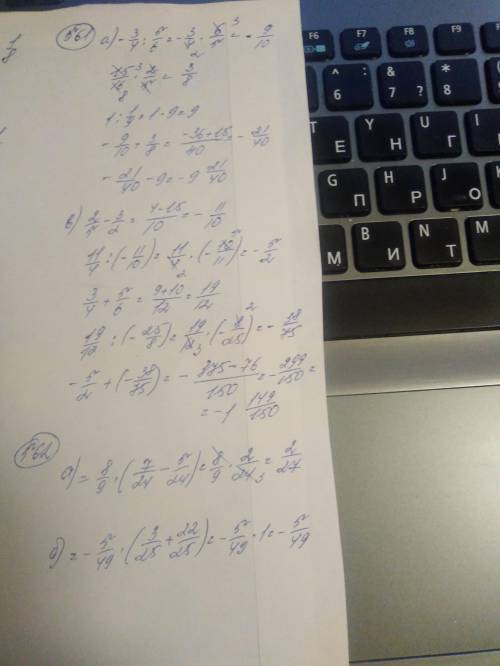 561 а) -3/4 : 5/6 = -3/4 · 6/5 = -9/10
15/16 · 2/5 = 3/8
1 : 1/9 = 1 · 9 = 9
-9/10 + 3/8 = -36+15/40 = -21/40
-21/40 - 9 = -9 21/40
в) 2/5 - 3/2 = 4-15/10 = -11/10
11/4 : (-11/10) = 11/4 · (-10/11) = -5/2
3/4 + 5/6 = 9+10/12 = 19/12
19/12 : (-25/8) = 19/12 · (-8/25) = -38/75
-5/2 + (-38/75) = -375-76/150 = -299/150 =
= -1 149/150
562
а) = 8/9 · (7/24 - 5/24) = 8/9 · 2/24 = 2/27
б) = -5/49 · (3/25 + 22/25) = -5/49 · 1 = -5/49
F6
F7
F8
F9
^ : 6
& ? 7
* 8
9
T Е
Y Н
U Г
I
G П
H Р
J
B
N